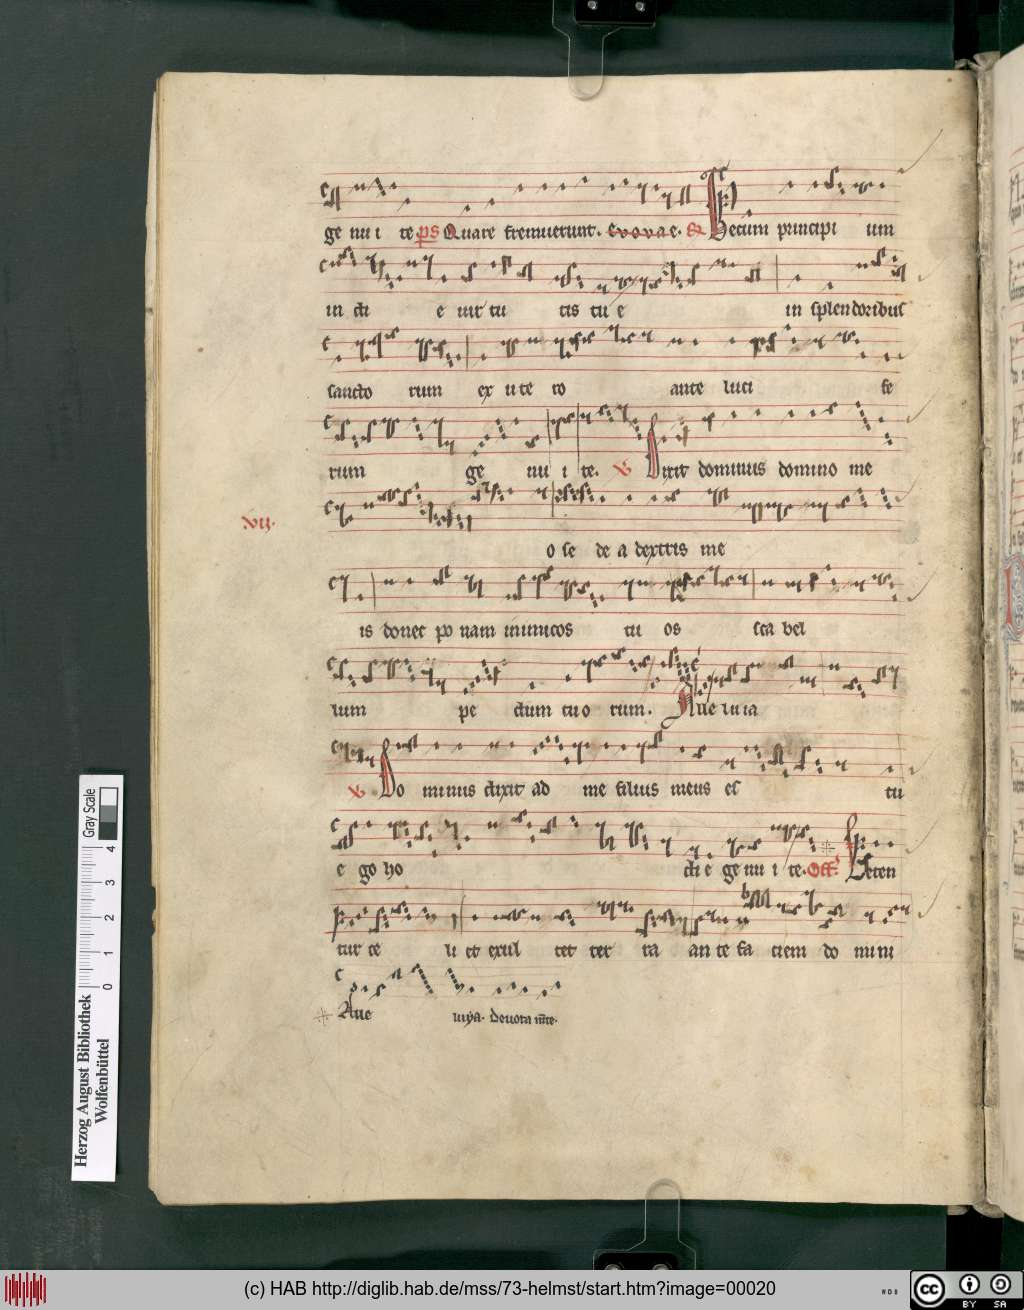 ge nu i te ps Quare fremuerunt. evovae. Gr Tecum principi um
in di e uir tu tis tu e in splendoribus
sancto rum ex u te ro ante luci fe
rum ge nu i te. v Dixit dominus domino me
xij.
o se de a dextris me
is donec po nam inimicos tu os sca bel
lum pe dum tuo rum. Alle lu ia
v Do minus dixit ad me filius meus es tu
e go ho di e ge nu i te. Off. Leten
tur ce li et exul tet ter ra an te fa ciem do mini
Alle luya.
Herzog August Bibliothek
Wolfenbüttel
0 1 2 3 4
Gray Scale
(c) HAB http://diglib.hab.de/mss/73-helmst/start.htm?image=00020
cc BY SA